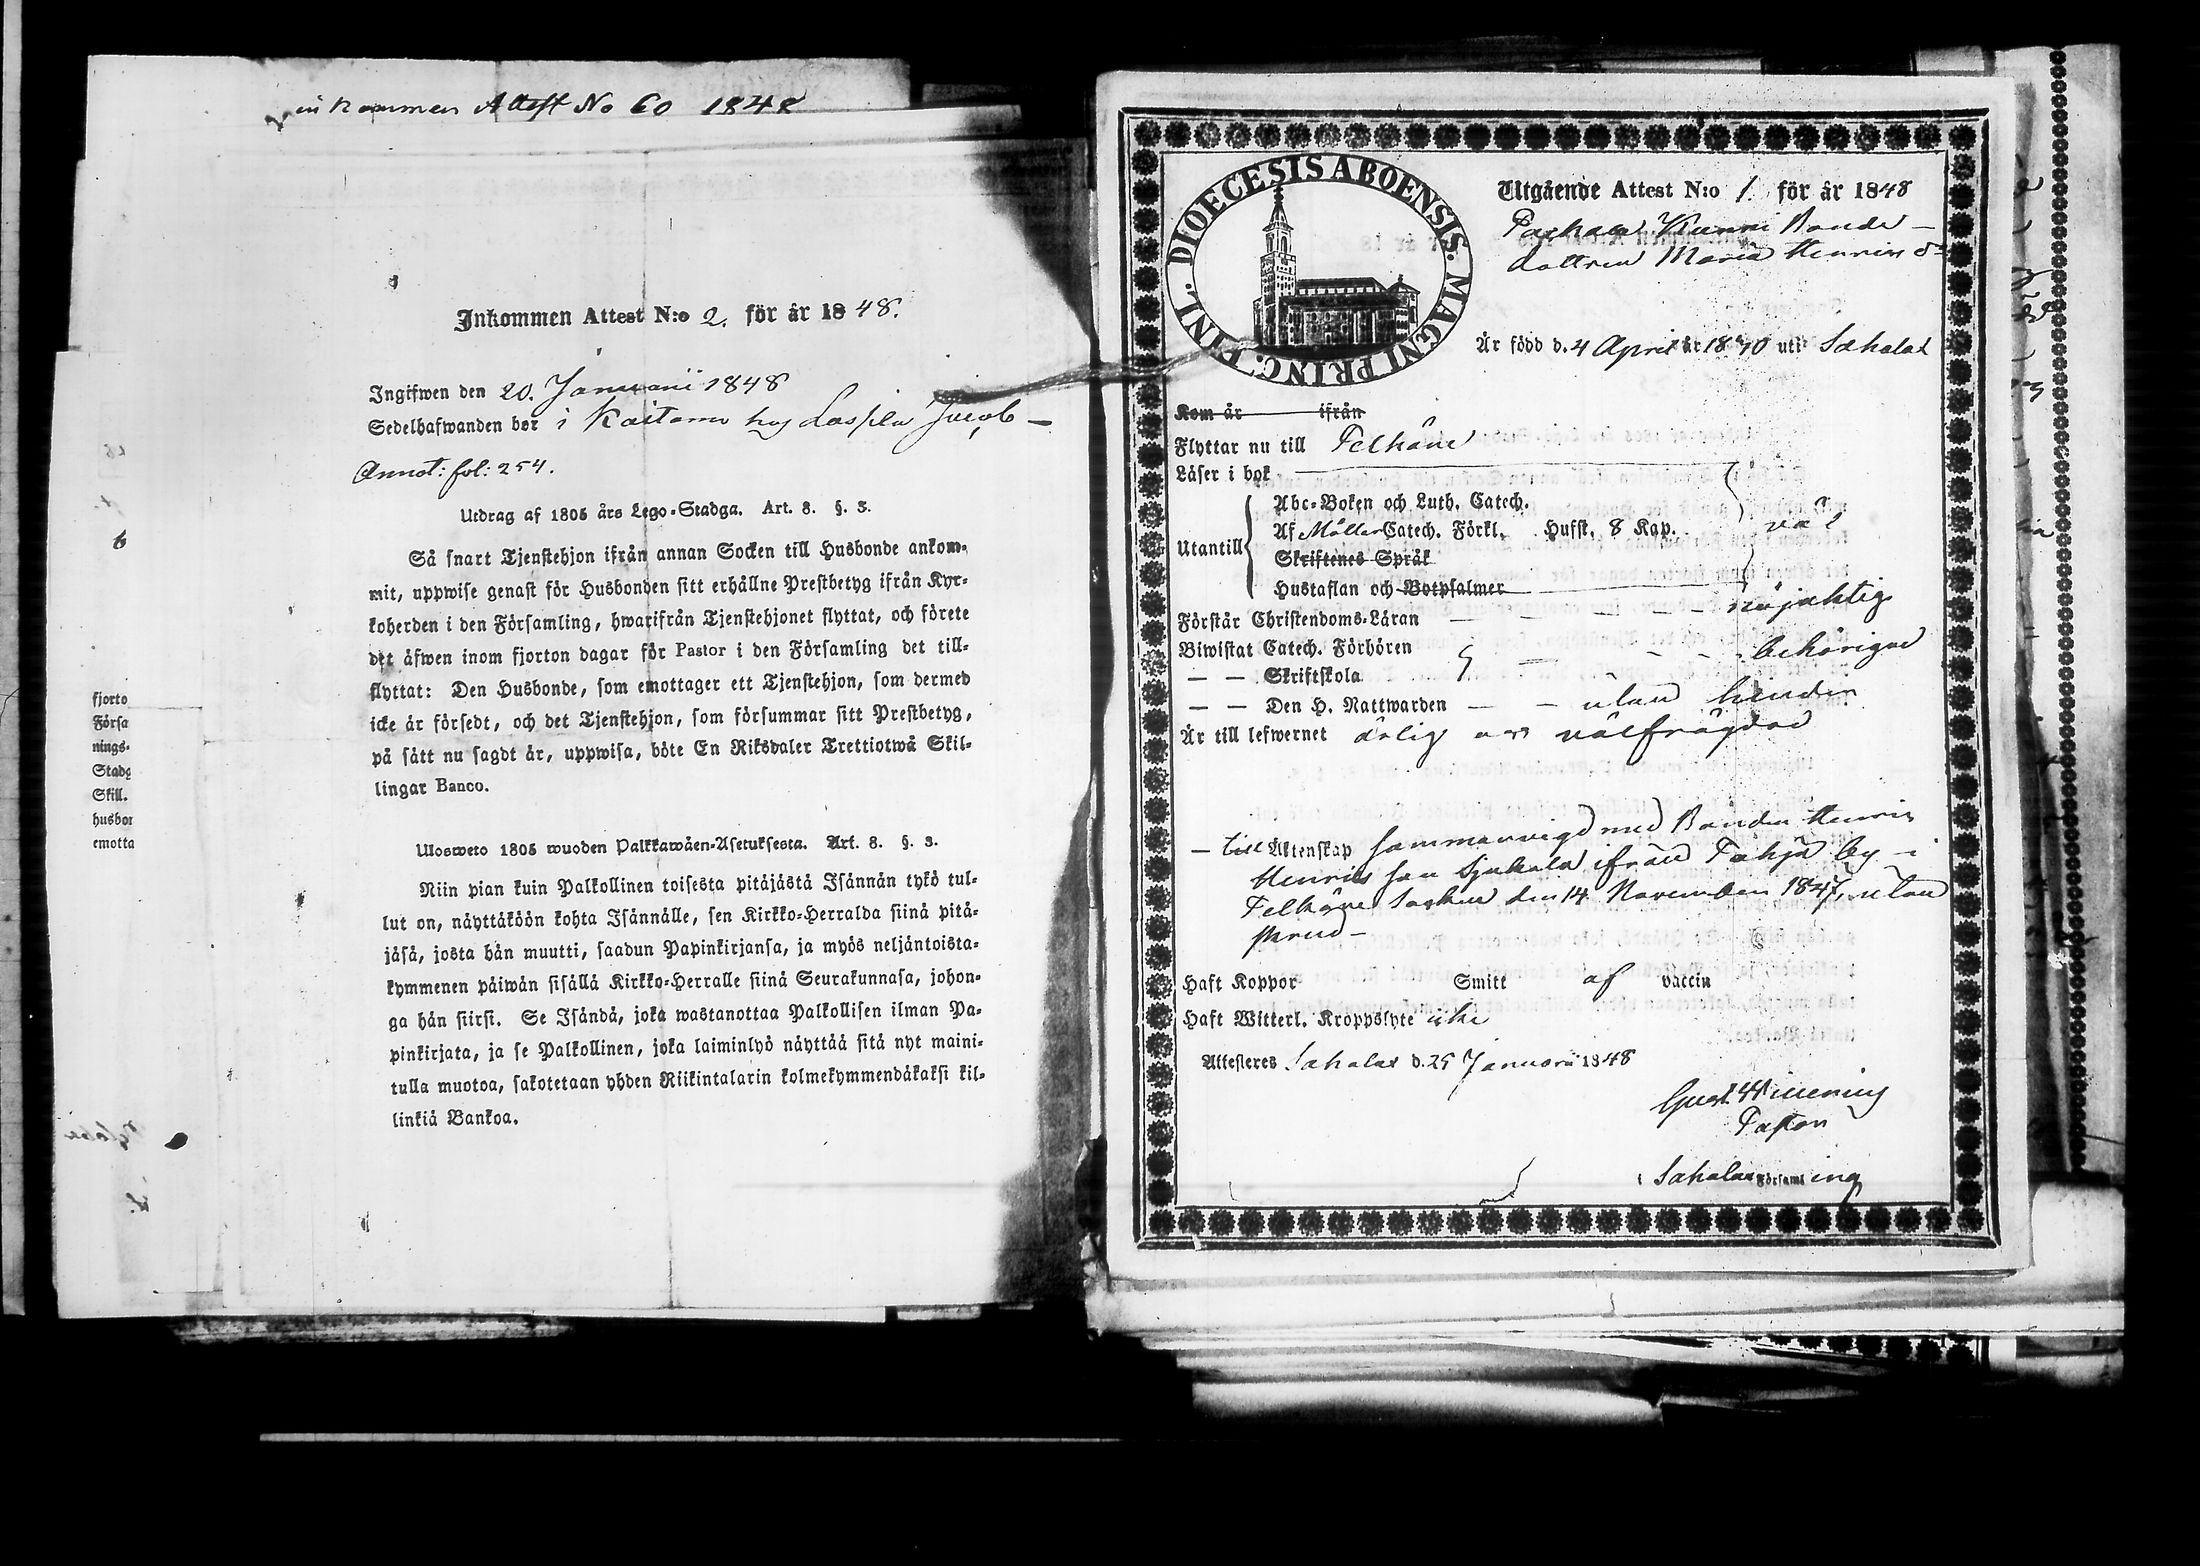 inkommen Attest No 60 1848
Inkommen Attest N:o 2. för år 1848.
Ingifwen den 20. Januarii 1848
Sedelhafwanden bor i Kaitamo hos Jacob —
Annot: fol: 254.
Utdrag af 1805 års Lego-Stadga. Art. 8. §. 3.
Så snart Tjenstehjon ifrån annan Socken till Husbonde ankom-
mit, uppwise genast för Husbonden sitt erhållne Prestbetyg ifrån Kyr-
koherden i den Församling, hwarifrån Tjenstehjonet flyttat, och förete
det äfwen inom fjorton dagar för Pastor i den Församling det till-
flyttat: Den Husbonde, som emottager ett Tjenstehjon, som dermed
icke är försedt, och det Tjenstehjon, som försummar sitt Prestbetyg,
på sätt nu sagdt är, uppwisa, böte En Riksdaler Trettiotwå Skil-
lingar Banco.
Ulosweto 1805 wuoden Palkkawäen-Asetuksesta. Art. 8. §. 3.
Niin pian kuin Palkollinen toisesta pitäjästä Isännän tykö tul-
lut on, näyttäköön kohta Isännälle, sen Kirkko-Herralda siinä pitä-
jäsä, josta hän muutti, saadun Papinkirjansa, ja myös neljäntoista-
kymmenen päiwän sisällä Kirkko-Herralle siinä Seurakunnasa, johon-
ga hän siirsi. Se Isändä, joka wastanottaa Palkollisen ilman Pa-
pinkirjata, ja se Palkollinen, joka laiminlyö näyttää sitä nyt maini-
tulla muotoa, sakotetaan yhden Riikintalarin kolmekymmendäkaksi kil-
linkiä Bankoa.
fjorto
Försa
nings-
Stadg
Skill.
husbor
emotta
DIOECESIS ABOENSIS. MAGNI PRINC. FINL.
Utgående Attest N:o 1. för år 1848
Kunni Bonde —
dottren Maria Henrics d:r
Är född d. 4 April år 1810 uti Sahalax
Kom år ifrån
Flyttar nu till Pelkäne
Läser i bok
Abc-Boken och Luth. Catech.
Utantill Af Möller Catech. Förkl. Hufst. 8 Kap. väl
Skriftenes Språk
Hustaflan och Botpsalmer
Förstår Christendoms-Läran — — — nöjaktigt
Biwistat Catech. Förhören — — behörigen
— — Skriftskola
— — Den H. Nattwarden — — utan hinder
Är till lefwernet ärlig och välfrägdad
— till Äktenskap sammanvigd med Bonden Henric
Henrics son Sjukala ifrån Tohja by i
Pelkäne Socken den 14 November 1847, utan
Haft Koppor Smitt af vaccin
Haft Witterl. Kroppslyte icke
Attesteres Sahalax d. 25 Januarii 1848
Pastor
i Sahalax Församling